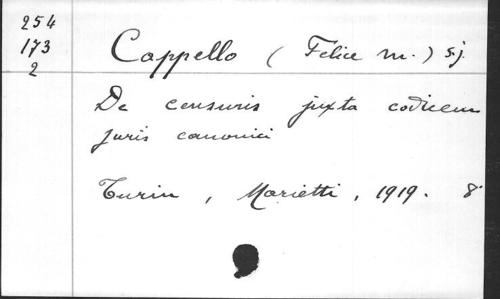 254
173
2
Cappello (Felice M.) S.j.
De censuris juxta codicem
juris canonici
Turin, Marietti, 1919. 8°